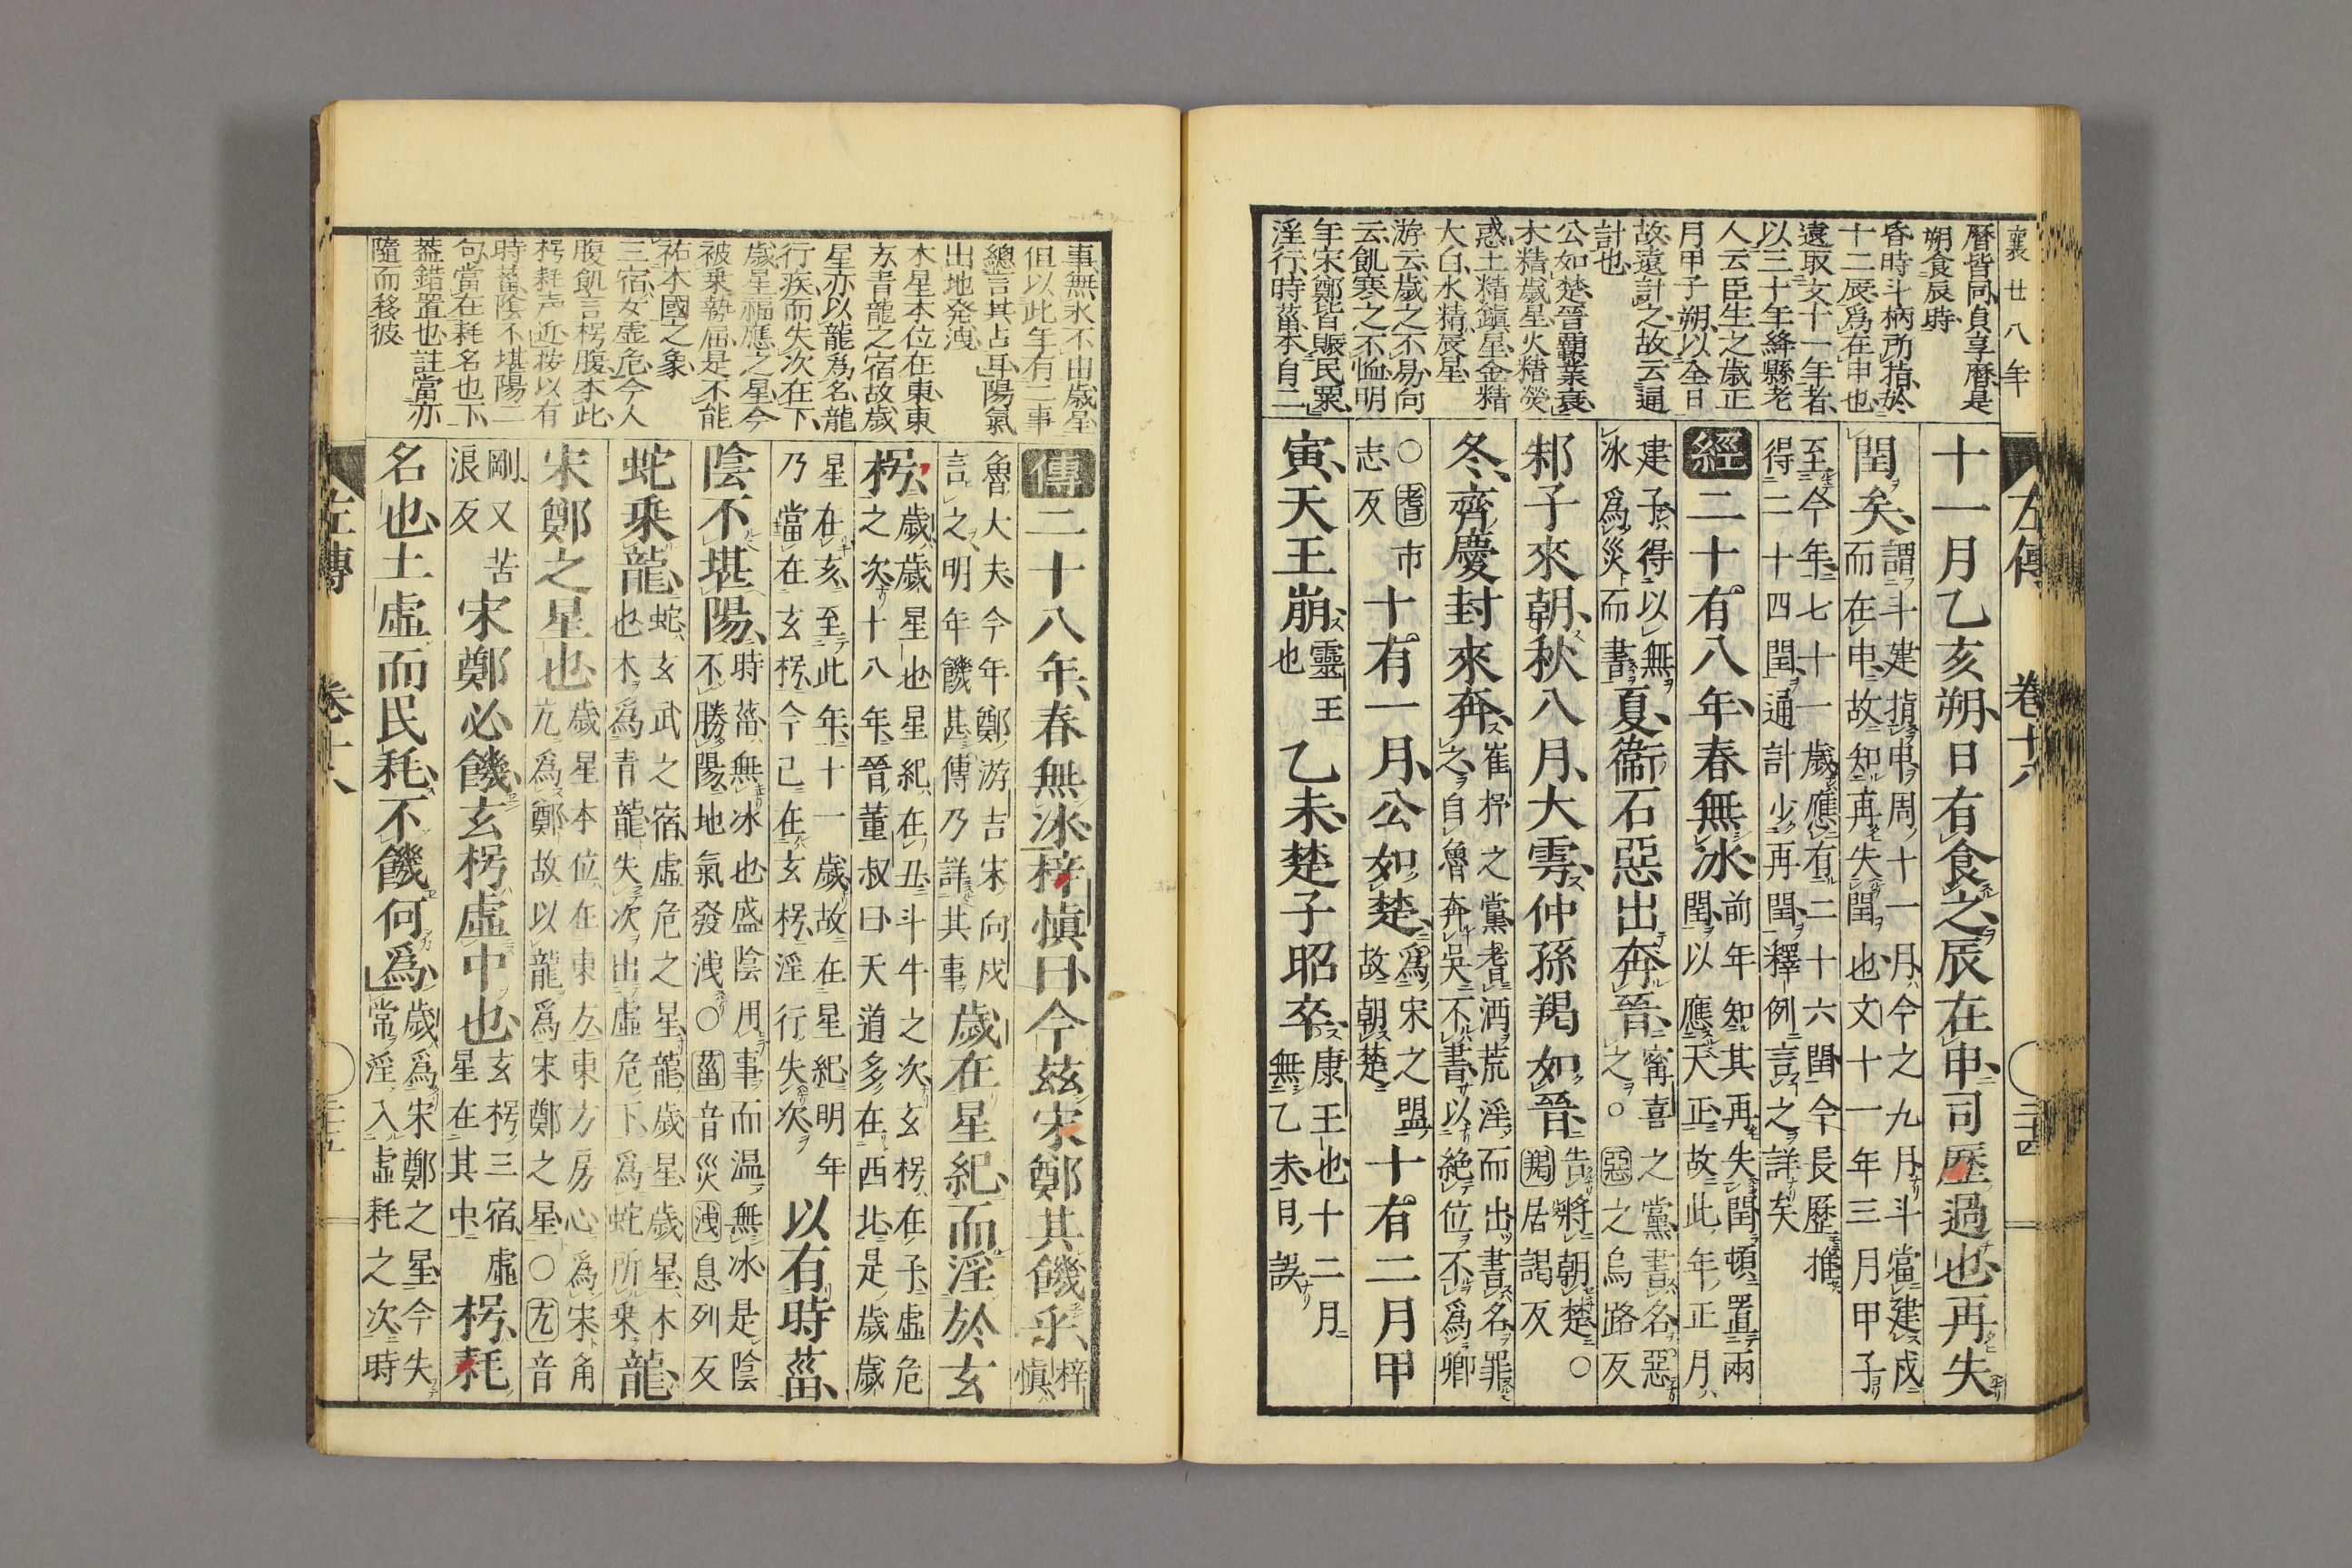 襄廿八年
左傳
卷十八
三十四
暦皆同貞享暦是
朔食辰時
昏時斗柄所指於
十二辰爲在申也
遠取文十一年者
以三十年絳縣老
人云臣生之歳正
月甲子朔以全日
故遠計之故云通
計也
公如楚晉霸業衰
木精歳星火精熒
惑土精鎭星金精
大白水精辰星
游云歳之不易向
云飢寒之不恤明
年宋鄭皆賑民粟
淫行時菑本自二
十一月乙亥朔日有食之辰在申司歷過也再失
閏矣
謂斗建指申周十一月今之九月斗當建戌
而在申故知再失閏也文十一年三月甲子
至今年七十一歳應有二十六閏今長歷推
得二十四閏通計少再閏釋例言之詳矣
經二十有八年春無冰
前年知其再失閏頓置兩
閏以應天正故此年正月
建子得以無
冰爲災而書
夏衞石惡出奔晉
甯喜之黨書名惡
之○惡之烏路反
邾子來朝秋八月大雩仲孫羯如晉
告將朝楚○
羯居謁反
冬齊慶封來奔
崔杼之黨耆酒荒淫而出書名罪
之自魯奔吳不書以絶位不爲卿
○耆市
志反
十有一月公如楚
爲宋之盟
故朝楚
十有二月甲
寅天王崩
靈王
也
乙未楚子昭卒
康王也十二月
無乙未日誤
傳二十八年春無冰梓慎曰今兹宋鄭其饑乎
梓
慎
魯大夫今年鄭游吉宋向戌
言之明年饑甚傳乃詳其事
歳在星紀而淫於玄
枵
歳歳星也星紀在丑斗牛之次玄枵在子虛危
之次十八年晉董叔曰天道多在西北是歳歳
星在亥至此年十一歳故在星紀明年
乃當在玄枵今已在玄枵淫行失次
以有時菑
陰不堪陽
時菑無冰也盛陰用事而温無冰是陰
不勝陽地氣發洩○菑音災洩息列反
蛇乘龍
蛇玄武之宿虛危之星龍歳星歳星木
也木爲青龍失次出虛危下爲蛇所乘
龍
宋鄭之星也
歳星本位在東方東方房心爲宋角
亢爲鄭故以龍爲宋鄭之星○亢音
剛又苦
浪反
宋鄭必饑玄枵虛中也
玄枵三宿虛
星在其中
枵耗
名也土虛而民耗不饑何爲
歳爲宋鄭之星今失
常淫入虛耗之次時
事無氷不由歳星
但以此年有二事
總言其占耳陽氣
出地発洩
木星本位在東東
方青龍之宿故歳
星亦以龍爲名龍
行疾而失次在下
歳星福應之星今
被乗勢屈是不能
祐本國之象
三宿女虛危今人
腹飢言枵腹本此
枵耗声近按以有
時菑陰不堪陽二
句當在耗名也下
葢錯置也註當亦
隨而移彼
左傳
卷十八
三十五